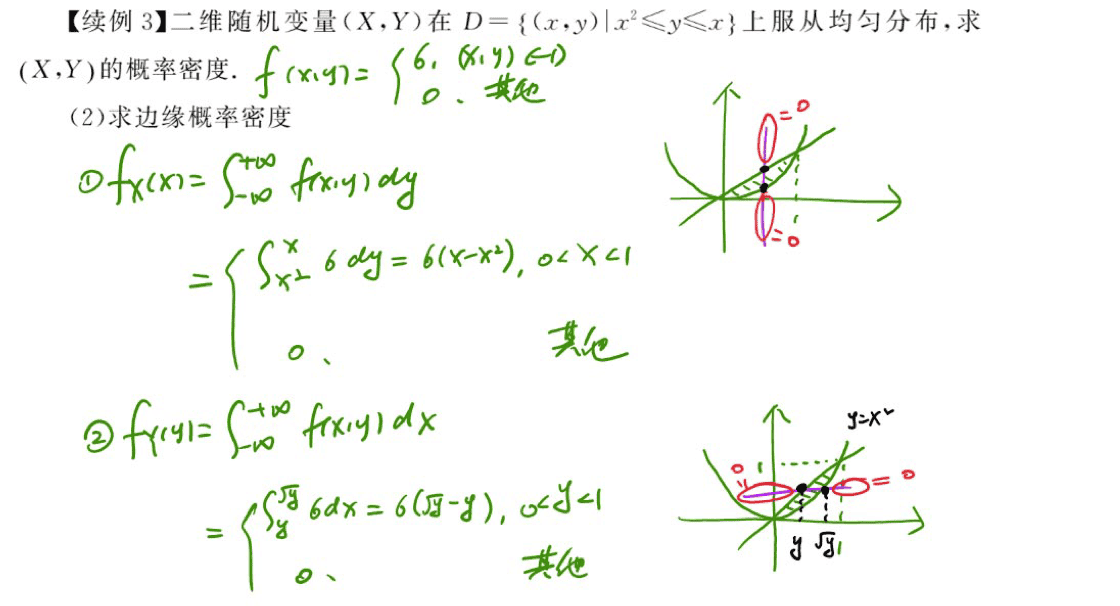 【续例 3】二维随机变量(X,Y)在 D={(x,y)|x²≤y≤x}上服从均匀分布,求
(X,Y)的概率密度. f(x,y)= { 6, (x,y)∈D
0, 其他
(2)求边缘概率密度
=0
① f_X(x)= ∫_{-∞}^{+∞} f(x,y)dy
=0
= { ∫_{x²}^{x} 6 dy = 6(x-x²), 0<x<1
0, 其他
② f_Y(y)= ∫_{-∞}^{+∞} f(x,y)dx
y=x²
0 1 =0
= { ∫_{y}^{√y} 6dx = 6(√y-y), 0<y<1
y √y 1
0, 其他